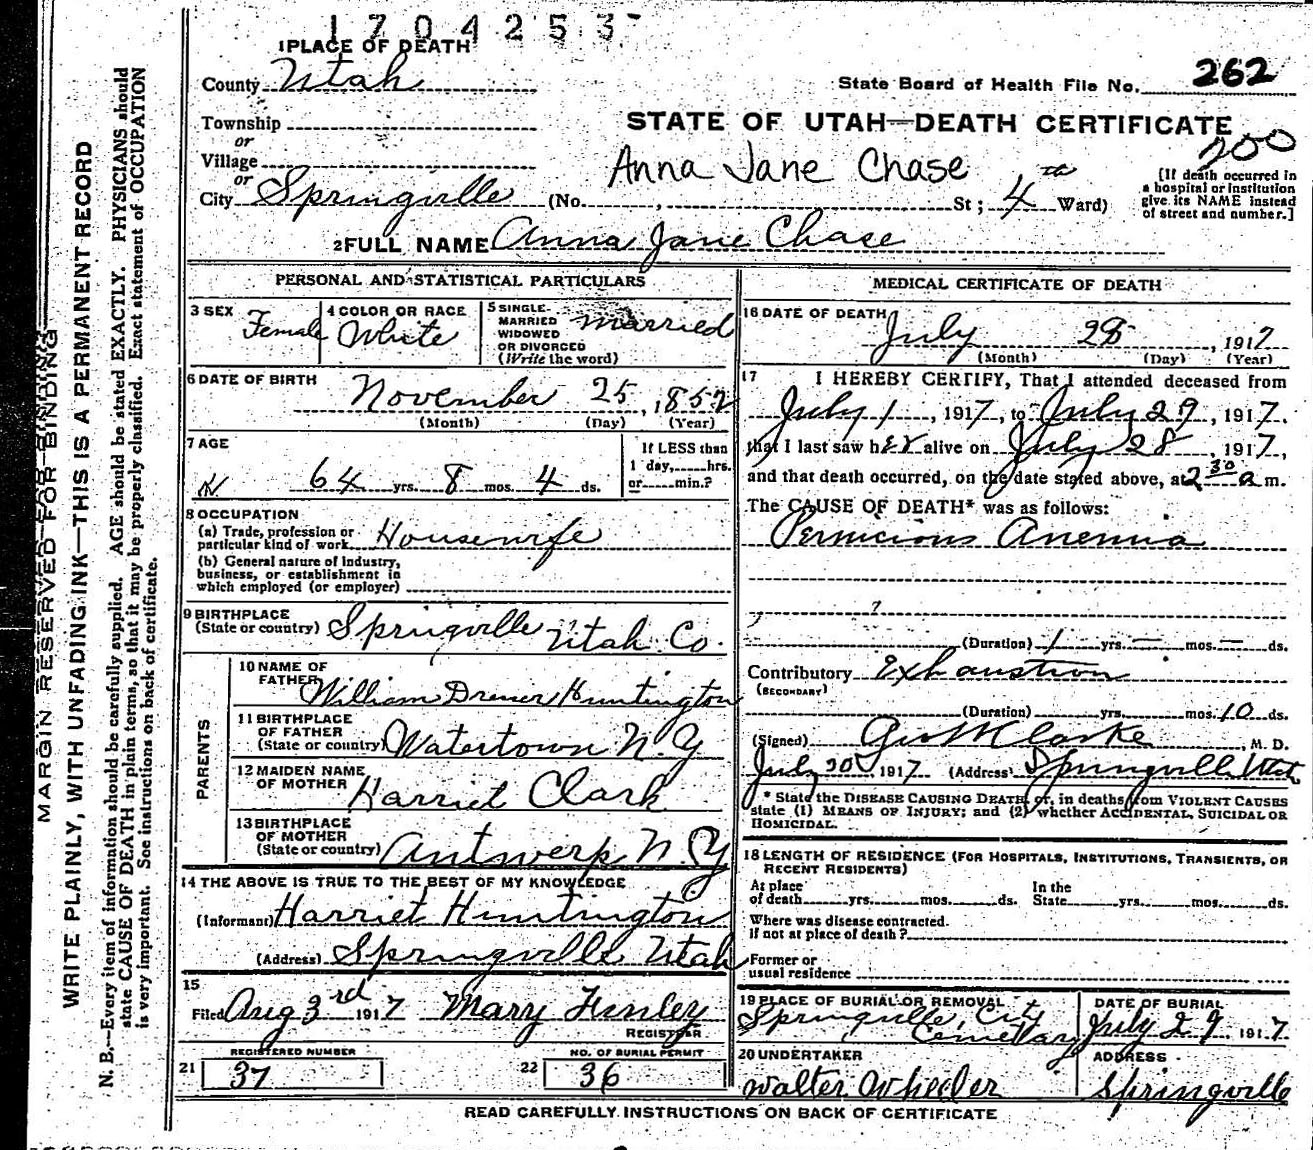 1704253
1 PLACE OF DEATH
County Utah
State Board of Health File No. 262
Township
or
Village
or
City Springville (No. , St; 4th Ward)
STATE OF UTAH—DEATH CERTIFICATE
200
Anna Jane Chase
[If death occurred in
a hospital or institution
give its NAME instead
of street and number.]
2 FULL NAME Anna Jane Chase
PERSONAL AND STATISTICAL PARTICULARS
3 SEX Female
4 COLOR OR RACE White
5 SINGLE
MARRIED
WIDOWED
OR DIVORCED
(Write the word) married
6 DATE OF BIRTH November 25, 1852
(Month) (Day) (Year)
7 AGE
64 yrs. 8 mos. 4 ds.
If LESS than
1 day,......hrs.
or......min.?
8 OCCUPATION
(a) Trade, profession or
particular kind of work Housewife
(b) General nature of industry,
business, or establishment in
which employed (or employer)
9 BIRTHPLACE
(State or country) Springville Utah Co.
PARENTS
10 NAME OF
FATHER William Dresser Huntington
11 BIRTHPLACE
OF FATHER
(State or country) Watertown N.Y
12 MAIDEN NAME
OF MOTHER Harriet Clark
13 BIRTHPLACE
OF MOTHER
(State or country) Antwerp N.Y
14 THE ABOVE IS TRUE TO THE BEST OF MY KNOWLEDGE
(Informant) Harriet Huntington
(Address) Springville Utah
15
Filed Aug 3rd 1917 Mary Finley
REGISTRAR
REGISTERED NUMBER
21 37
NO. OF BURIAL PERMIT
22 36
MEDICAL CERTIFICATE OF DEATH
16 DATE OF DEATH
July 28, 1917
(Month) (Day) (Year)
17 I HEREBY CERTIFY, That I attended deceased from
July 1, 1917, to July 29, 1917.
that I last saw hER alive on July 28, 1917,
and that death occurred, on the date stated above, at 2 30 a m.
The CAUSE OF DEATH* was as follows:
Pernicious Anemia
(Duration) 1 yrs. — mos. — ds.
Contributory Exhaustion
(SECONDARY)
(Duration) yrs. mos. 10 ds.
(Signed) Geo M Clarke, M. D.
July 20, 1917 (Address) Springville Utah
* State the DISEASE CAUSING DEATH, or, in deaths from VIOLENT CAUSES
state (1) MEANS OF INJURY; and (2) whether ACCIDENTAL, SUICIDAL OR
HOMICIDAL.
18 LENGTH OF RESIDENCE (FOR HOSPITALS, INSTITUTIONS, TRANSIENTS, OR
RECENT RESIDENTS)
At place
of death......yrs......mos......ds.
In the
State......yrs......mos......ds.
Where was disease contracted.
If not at place of death?
Former or
usual residence
19 PLACE OF BURIAL OR REMOVAL
Springville City
Cemetary
DATE OF BURIAL
July 29 1917.
20 UNDERTAKER
Walter Wheeler
ADDRESS
Springville
READ CAREFULLY INSTRUCTIONS ON BACK OF CERTIFICATE
MARGIN RESERVED FOR BINDING
WRITE PLAINLY, WITH UNFADING INK—THIS IS A PERMANENT RECORD
N. B.—Every item of information should be carefully supplied. AGE should be stated EXACTLY. PHYSICIANS should
state CAUSE OF DEATH in plain terms, so that it may be properly classified. Exact statement of OCCUPATION
is very important. See instructions on back of certificate.